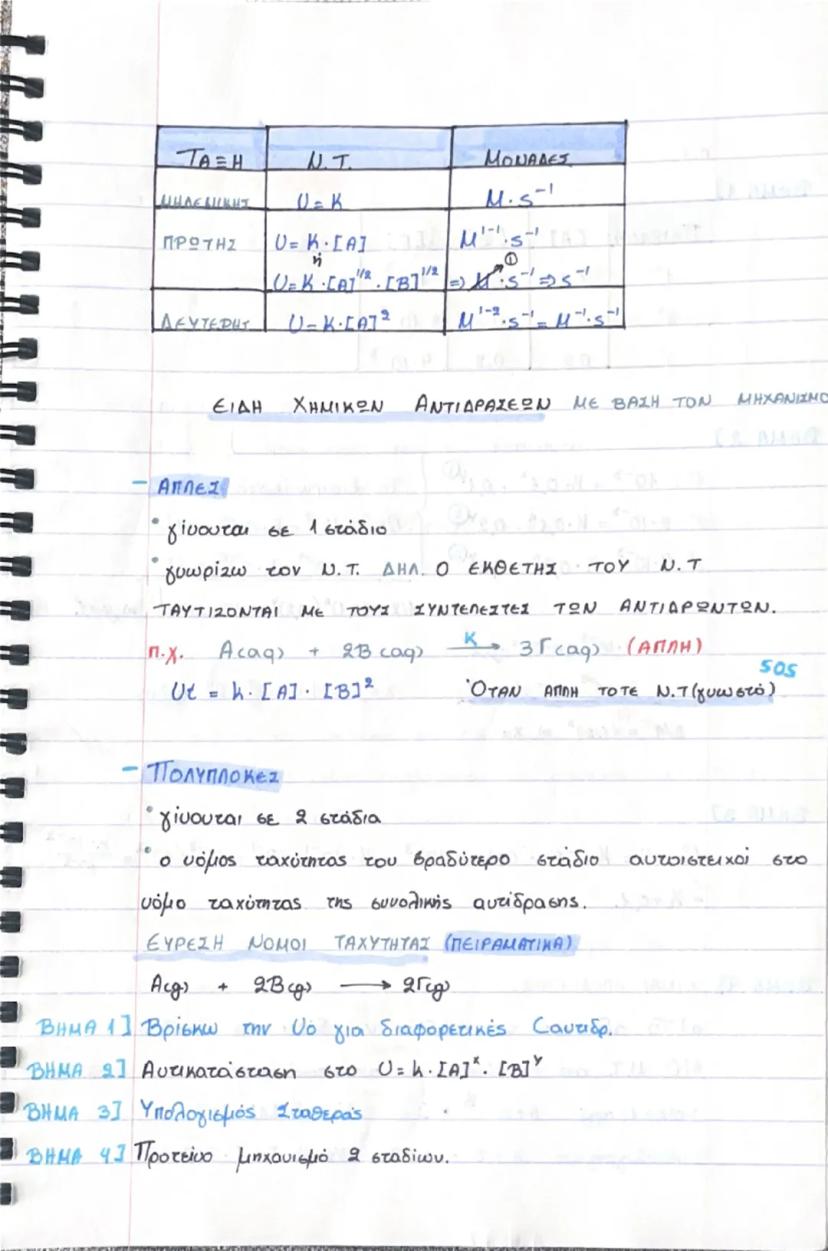 ΤΑΞΗ Ν.Τ. ΜΟΝΑΔΕΣ
ΜΗΔΕΝΙΚΗΣ U = K M · s⁻¹
ΠΡΩΤΗΣ U = K · [A] M¹⁻¹ · s⁻¹
ή ①
U = K · [A]¹/² · [B]¹/² => M · s⁻¹ => s⁻¹
ΔΕΥΤΕΡΗΣ U = K · [A]² M¹⁻² · s⁻¹ = M⁻¹ · s⁻¹
ΕΙΔΗ ΧΗΜΙΚΩΝ ΑΝΤΙΔΡΑΣΕΩΝ ΜΕ ΒΑΣΗ ΤΟΝ ΜΗΧΑΝΙΣΜΟ
- ΑΠΛΕΣ
• γίνονται σε 1 στάδιο
• γνωρίζω τον Ν.Τ. ΔΗΛ. Ο ΕΚΘΕΤΗΣ ΤΟΥ Ν.Τ
ΤΑΥΤΙΖΟΝΤΑΙ ΜΕ ΤΟΥΣ ΣΥΝΤΕΛΕΣΤΕΣ ΤΩΝ ΑΝΤΙΔΡΩΝΤΩΝ.
Π.Χ. A(aq) + 2B(aq) K → 3Γ(aq) (ΑΠΛΗ)
SOS
Ut = k · [A] · [B]² ΌΤΑΝ ΑΠΛΗ ΤΟΤΕ Ν.Τ (γνωστό)
- ΠΟΛΥΠΛΟΚΕΣ
• γίνονται σε 2 στάδια
• ο νόμος ταχύτητας του βραδύτερο στάδιο αντοιστειχοί στο
νόμο ταχύτητας της συνολικής αντίδρασης.
ΕΥΡΕΣΗ ΝΟΜΟΙ ΤΑΧΥΤΗΤΑΣ (ΠΕΙΡΑΜΑΤΙΚΑ)
A(g) + 2B(g) → 2Γ(g)
ΒΗΜΑ 1] Βρίσκω την Uό για διαφορετικές Cαντιδρ.
ΒΗΜΑ 2] Αντικατάσταση στο U = k · [A]ˣ · [B]ʸ
ΒΗΜΑ 3] Υπολογισμός Σταθεράς
ΒΗΜΑ 4] Προτείνο μηχανισμό 2 σταδίων.